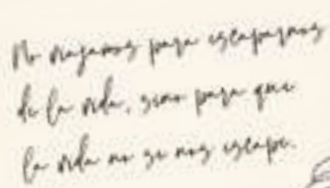 No viajamos para escaparnos
de la vida, sino para que
la vida no se nos escape.